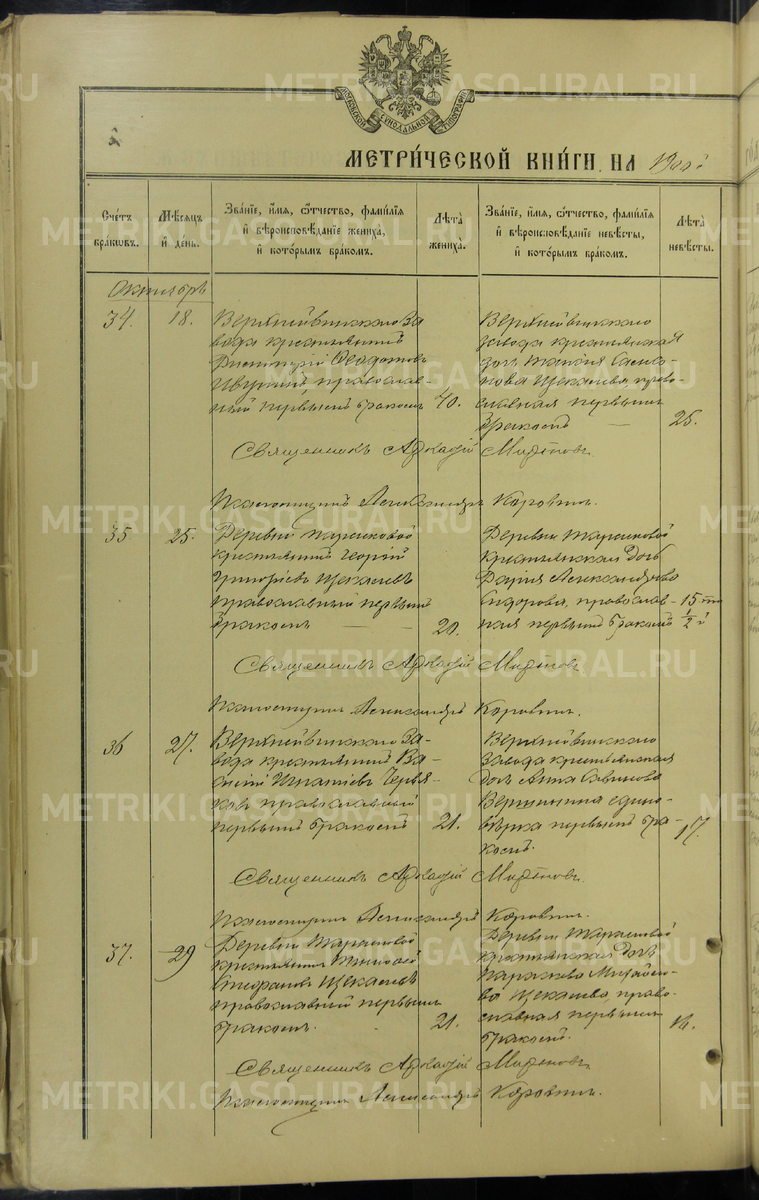 METRIKI.GASO-URAL.RU
МОСКОВСКОЙ СѴНОДАЛЬНОЙ ТИПОГРАФІИ
МЕТРИ́ЧЕСКОЙ КНИ́ГИ НА 190
Сче́тъ бра́ковъ.
Мѣ́сяцъ и҆ де́нь.
Зва́нїе, и҆́мя, ѻ҆́тчество, фамѝлїя и҆ вѣроисповѣ́данїе жениха̀, и҆ кото́рымъ бра́комъ.
Лѣ́та жениха̀.
Зва́нїе, и҆́мя, ѻ҆́тчество, фамѝлїя и҆ вѣроисповѣ́данїе невѣ́сты, и҆ кото́рымъ бра́комъ.
Лѣ́та невѣ́сты.
Октябрь
34.
18.
Верхнейвинскаго За
вода крестьянинъ
Димитрій
православ-
ный первымъ бракомъ
Верхнейвинскаго
завода крестьянская
дочь
Щекалева, право-
славная первымъ
бракомъ
25.
Священникъ Аркадій
Александръ Коровинъ.
35
25.
Деревни Тарасковой
крестьянинъ Георгій
Григоріевъ Щекалевъ
православный первымъ
бракомъ
20.
Деревни Тарасковой
крестьянская дочь
Дарія Александрова
Сидорова, православ-
ная первымъ бракомъ
15 1/2
Священникъ Аркадій
Александръ Коровинъ.
36
27.
Верхнейвинскаго За-
вода крестьянинъ Ва-
силій Игнатіевъ Червя-
ковъ православный
первымъ бракомъ
21.
Верхнейвинскаго
Завода крестьянская
дочь Анна Саввинова
Вершинина едино-
вѣрка первымъ бра-
комъ.
17.
Священникъ Аркадій
Александръ Коровинъ.
37.
29
Деревни Тарасковой
крестьянинъ Тимофей
Стефановъ Щекалевъ
православный первымъ
бракомъ.
21.
Деревни Тарасковой
крестьянская дочь
Михайло-
ва Щекалева, право-
славная первымъ
бракомъ.
Священникъ Аркадій
Александръ Коровинъ.